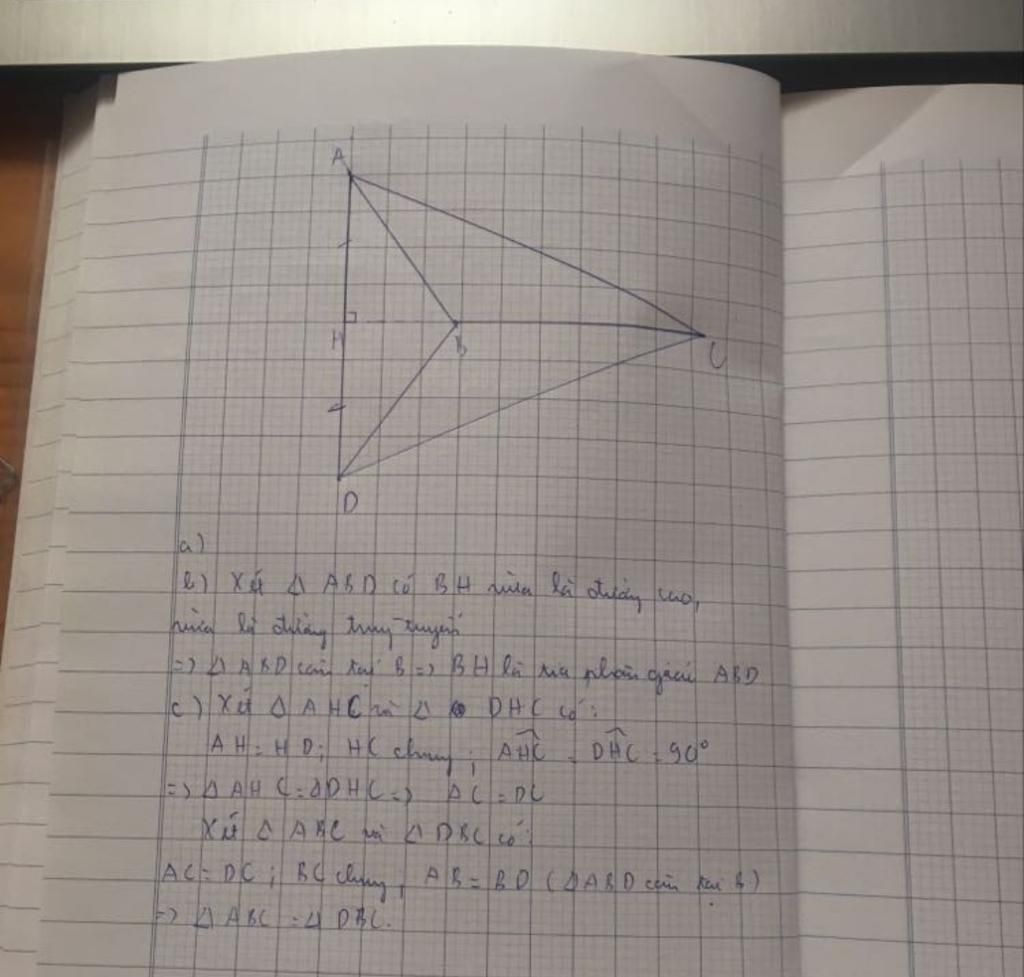 A
H
B
C
D
a)
b) Xét Δ ABD có BH vừa là đường cao,
vừa là đường trung tuyến
=> Δ ABD cân tại B => BH là tia phân giác ABD
c) Xét Δ AHC và Δ DHC có:
AH = HD; HC chung; AHC = DHC = 90°
=> Δ AHC = ΔDHC => AC = DC
Xét Δ ABC và Δ DBC có:
AC = DC; BC chung; AB = BD (ΔABD cân tại B)
=> Δ ABC = Δ DBC.